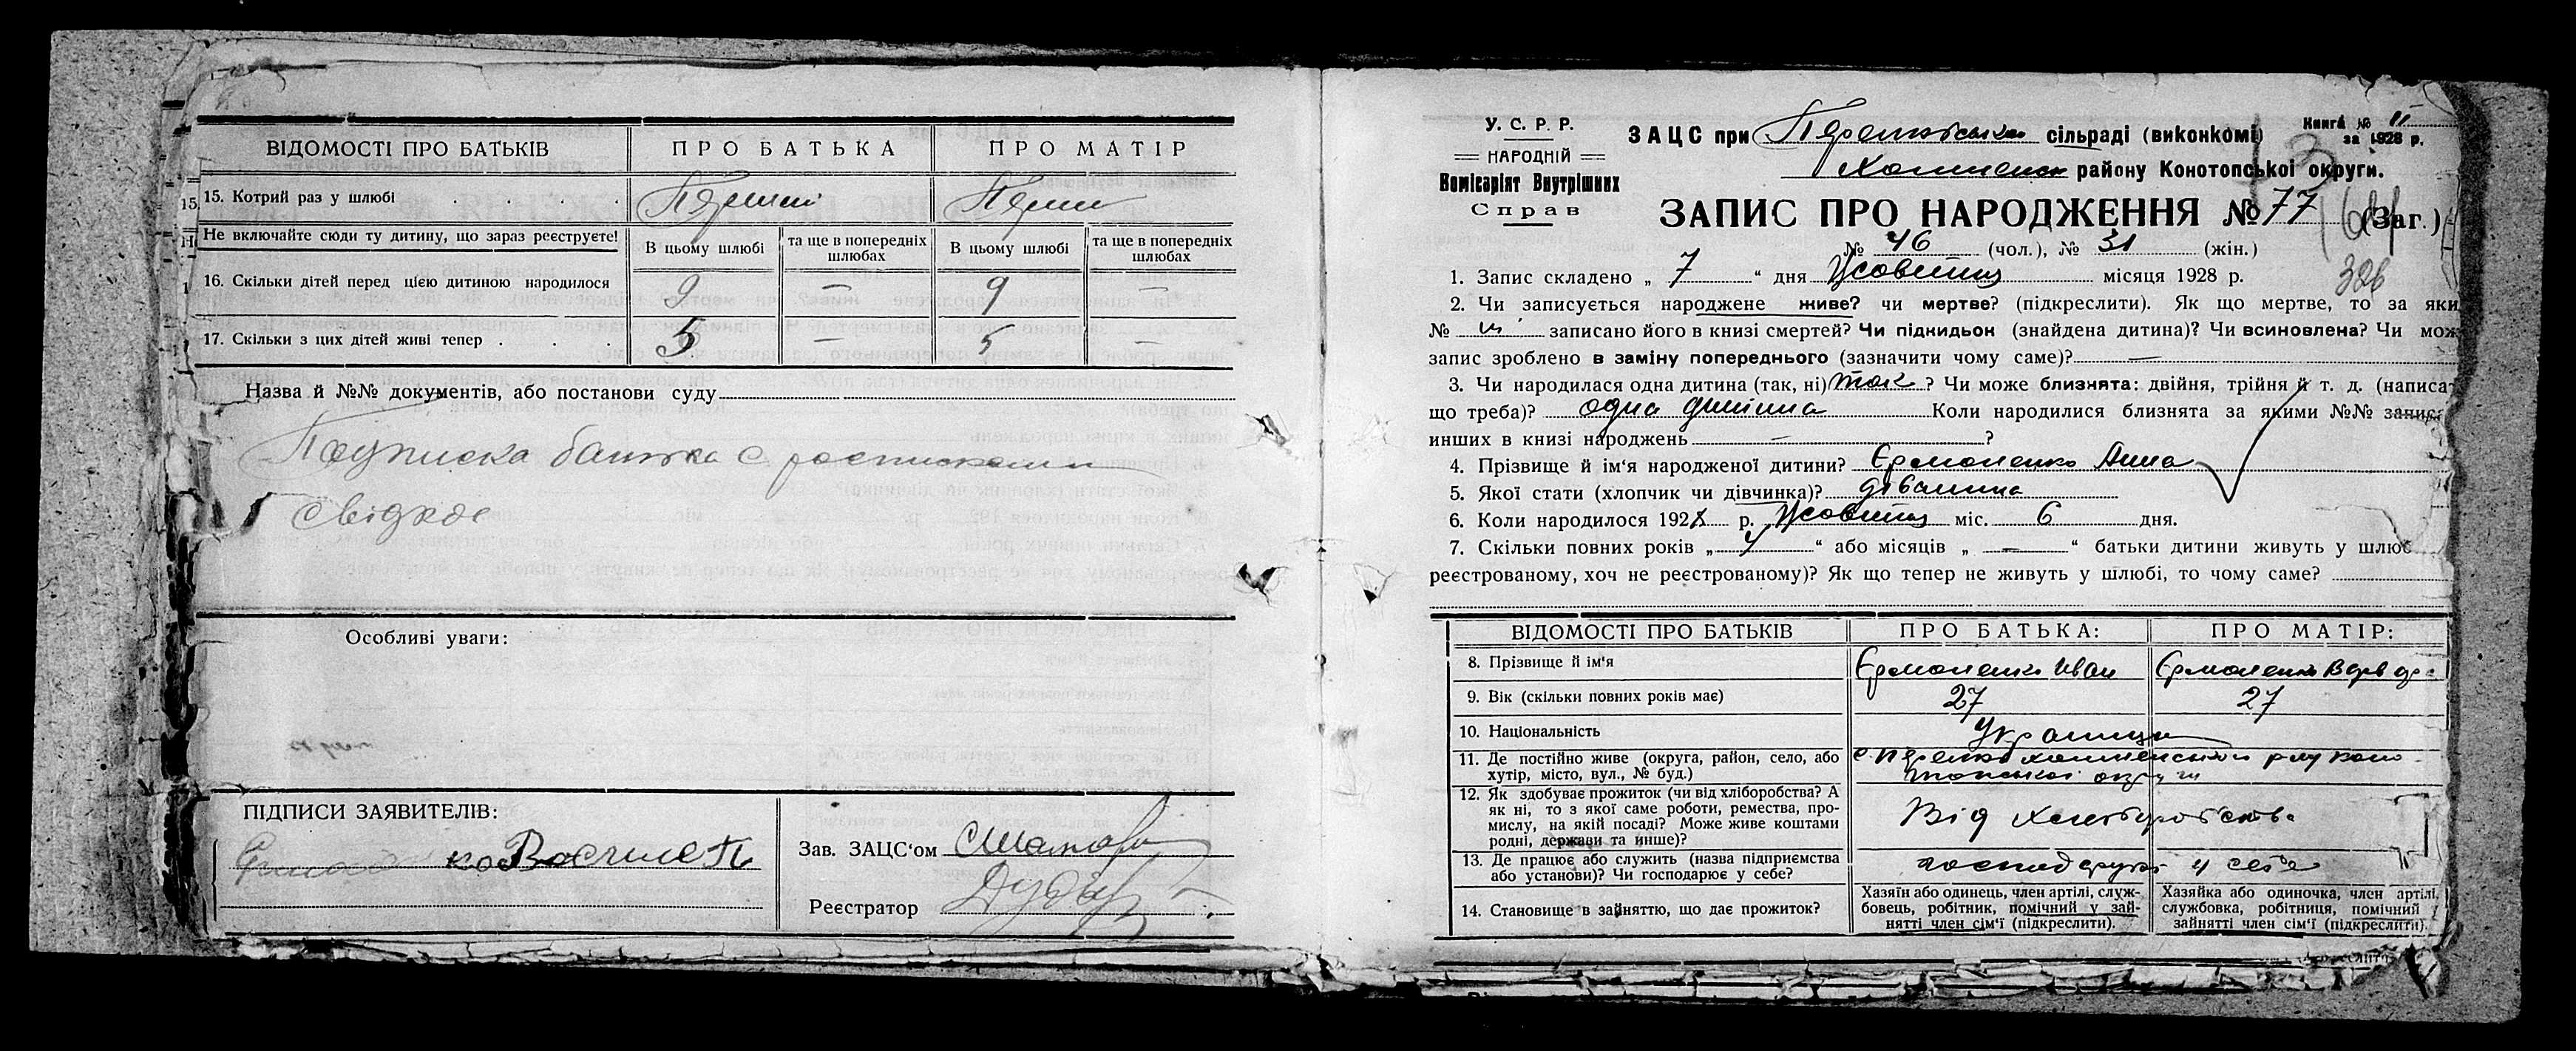 ВІДОМОСТІ ПРО БАТЬКІВ
ПРО БАТЬКА
ПРО МАТІР
15. Котрий раз у шлюбі
Перший
Перши
Не включайте сюди ту дитину, що зараз реєструєте!
В цьому шлюбі
та ще в попередніх шлюбах
В цьому шлюбі
та ще в попередніх шлюбах
16. Скільки дітей перед цією дитиною народилося
9 — 9 —
17. Скільки з цих дітей живі тепер
5 — 5 —
Назва й №№ документів, або постанови суду
Подписка батька с росписками
свідков
Особливі уваги:
ПІДПИСИ ЗАЯВИТЕЛІВ:
Зав. ЗАЦС'ом
Реєстратор
У. С. Р. Р.
НАРОДНІЙ
Комісаріят Внутрішних
Справ
ЗАЦС при сільраді (виконкомі)
Книга № II
за 1928 р.
району Конотопської округи.
ЗАПИС ПРО НАРОДЖЕННЯ № 77 (Заг.)
№ 46 (чол.), № 31 (жін.)
326
1. Запис складено „ 7 “ дня Жовтня місяця 1928 р.
2. Чи записується народжене живе? чи мертве? (підкреслити). Як що мертве, то за яки
№ записано його в книзі смертей? Чи підкидьок (знайдена дитина)? Чи всиновлена? Чи мож
запис зроблено в заміну попереднього (зазначити чому саме)? —
3. Чи народилася одна дитина (так, ні) так ? Чи може близнята: двійня, трійня й т. д. (написат
що треба)? одна дитина Коли народилися близнята за якими №№ записа
инших в книзі народжень — ?
4. Прізвище й ім'я народженої дитини? Єрмоленко Анна
5. Якої стати (хлопчик чи дівчинка)? дівчинка
6. Коли народилося 1928 р. Жовтня міс. 6 дня.
7. Скільки повних років „ “ або місяців „ — “ батьки дитини живуть у шлюб
реєстрованому, хоч не реєстрованому)? Як що тепер не живуть у шлюбі, то чому саме?
ВІДОМОСТІ ПРО БАТЬКІВ
ПРО БАТЬКА:
ПРО МАТІР:
8. Прізвище й ім'я
Єрмоленко Иван
Єрмоленко
9. Вік (скільки повних років має)
27
27
10. Національність
Українці
11. Де постійно живе (округа, район, село, або
хутір, місто, вул., № буд.)
округи
12. Як здобуває прожиток (чи від хліборобства? А
як ні, то з якої саме роботи, ремества, про-
мислу, на якій посаді? Може живе коштами
родні, держави та инше)?
Від хліборобства
13. Де працює або служить (назва підприємства
або установи)? Чи господарює у себе?
у себе
14. Становище в зайняттю, що дає прожиток?
Хазяїн або одинець, член артілі, служ-
бовець, робітник, помічний у зай-
нятті член сім'ї (підкреслити).
Хазяйка або одиночка, член артілі,
службовка, робітниця, помічний
зайнятті член сім'ї (підкреслити).